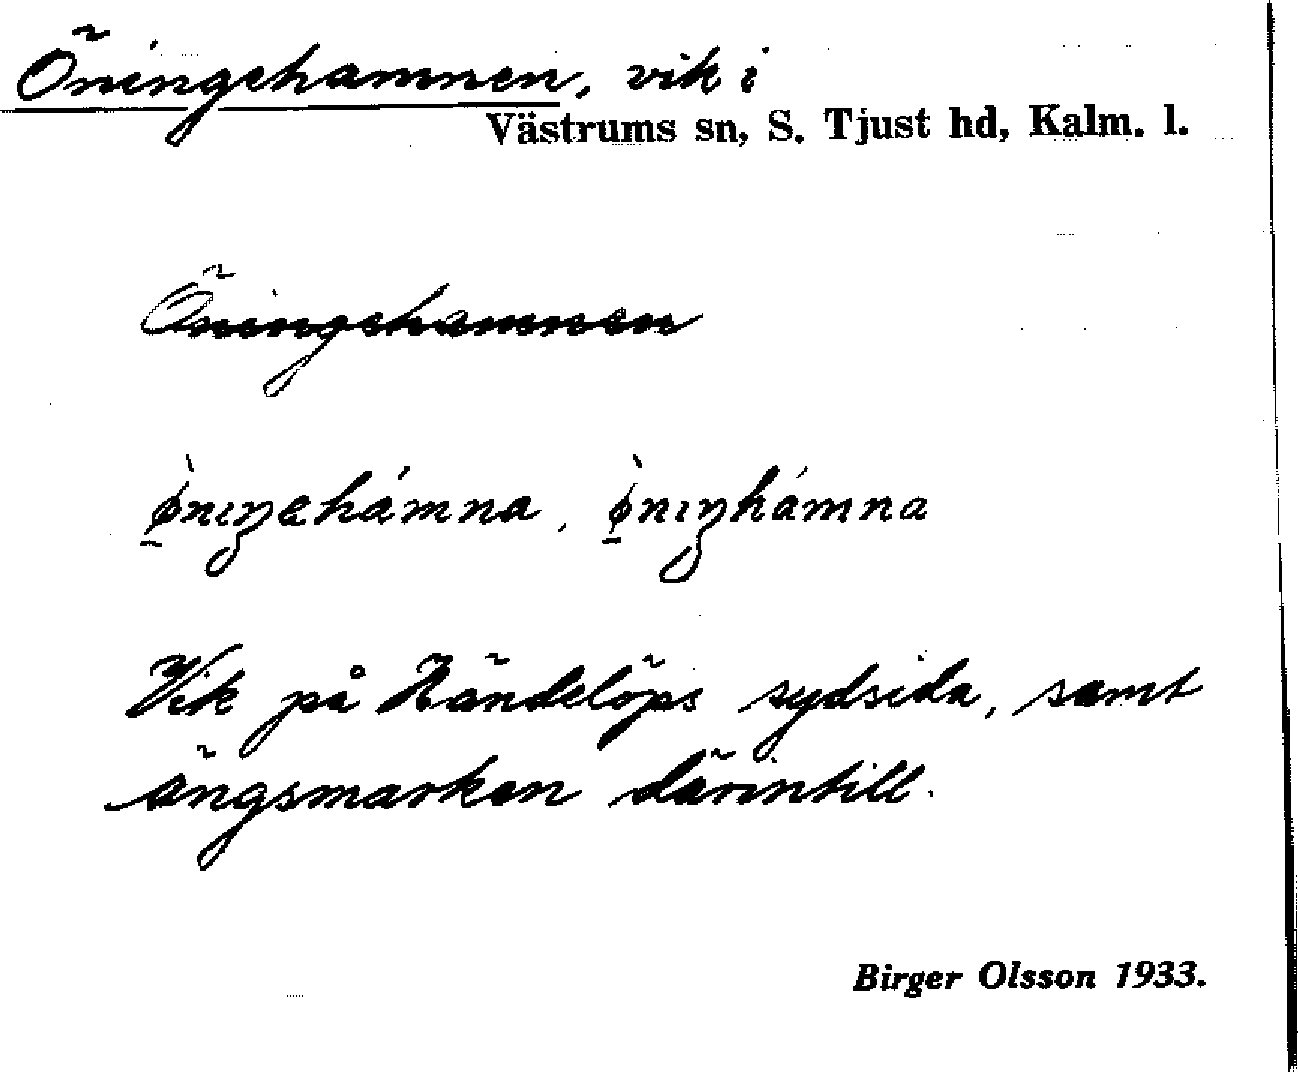 Öningehamnen, vik i
Västrums sn, S. Tjust hd, Kalm. l.
Öningehamnen
ø̀nıŋehámna, ø̀nıŋhámna
Vik på Händelöps sydsida, samt
ängsmarken därintill.
Birger Olsson 1933.